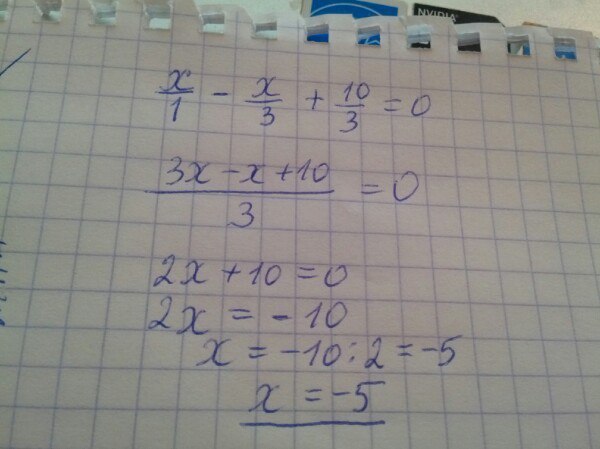 NVIDIA
x/1 - x/3 + 10/3 = 0
(3x - x + 10)/3 = 0
2x + 10 = 0
2x = - 10
x = -10 : 2 = -5
x = -5